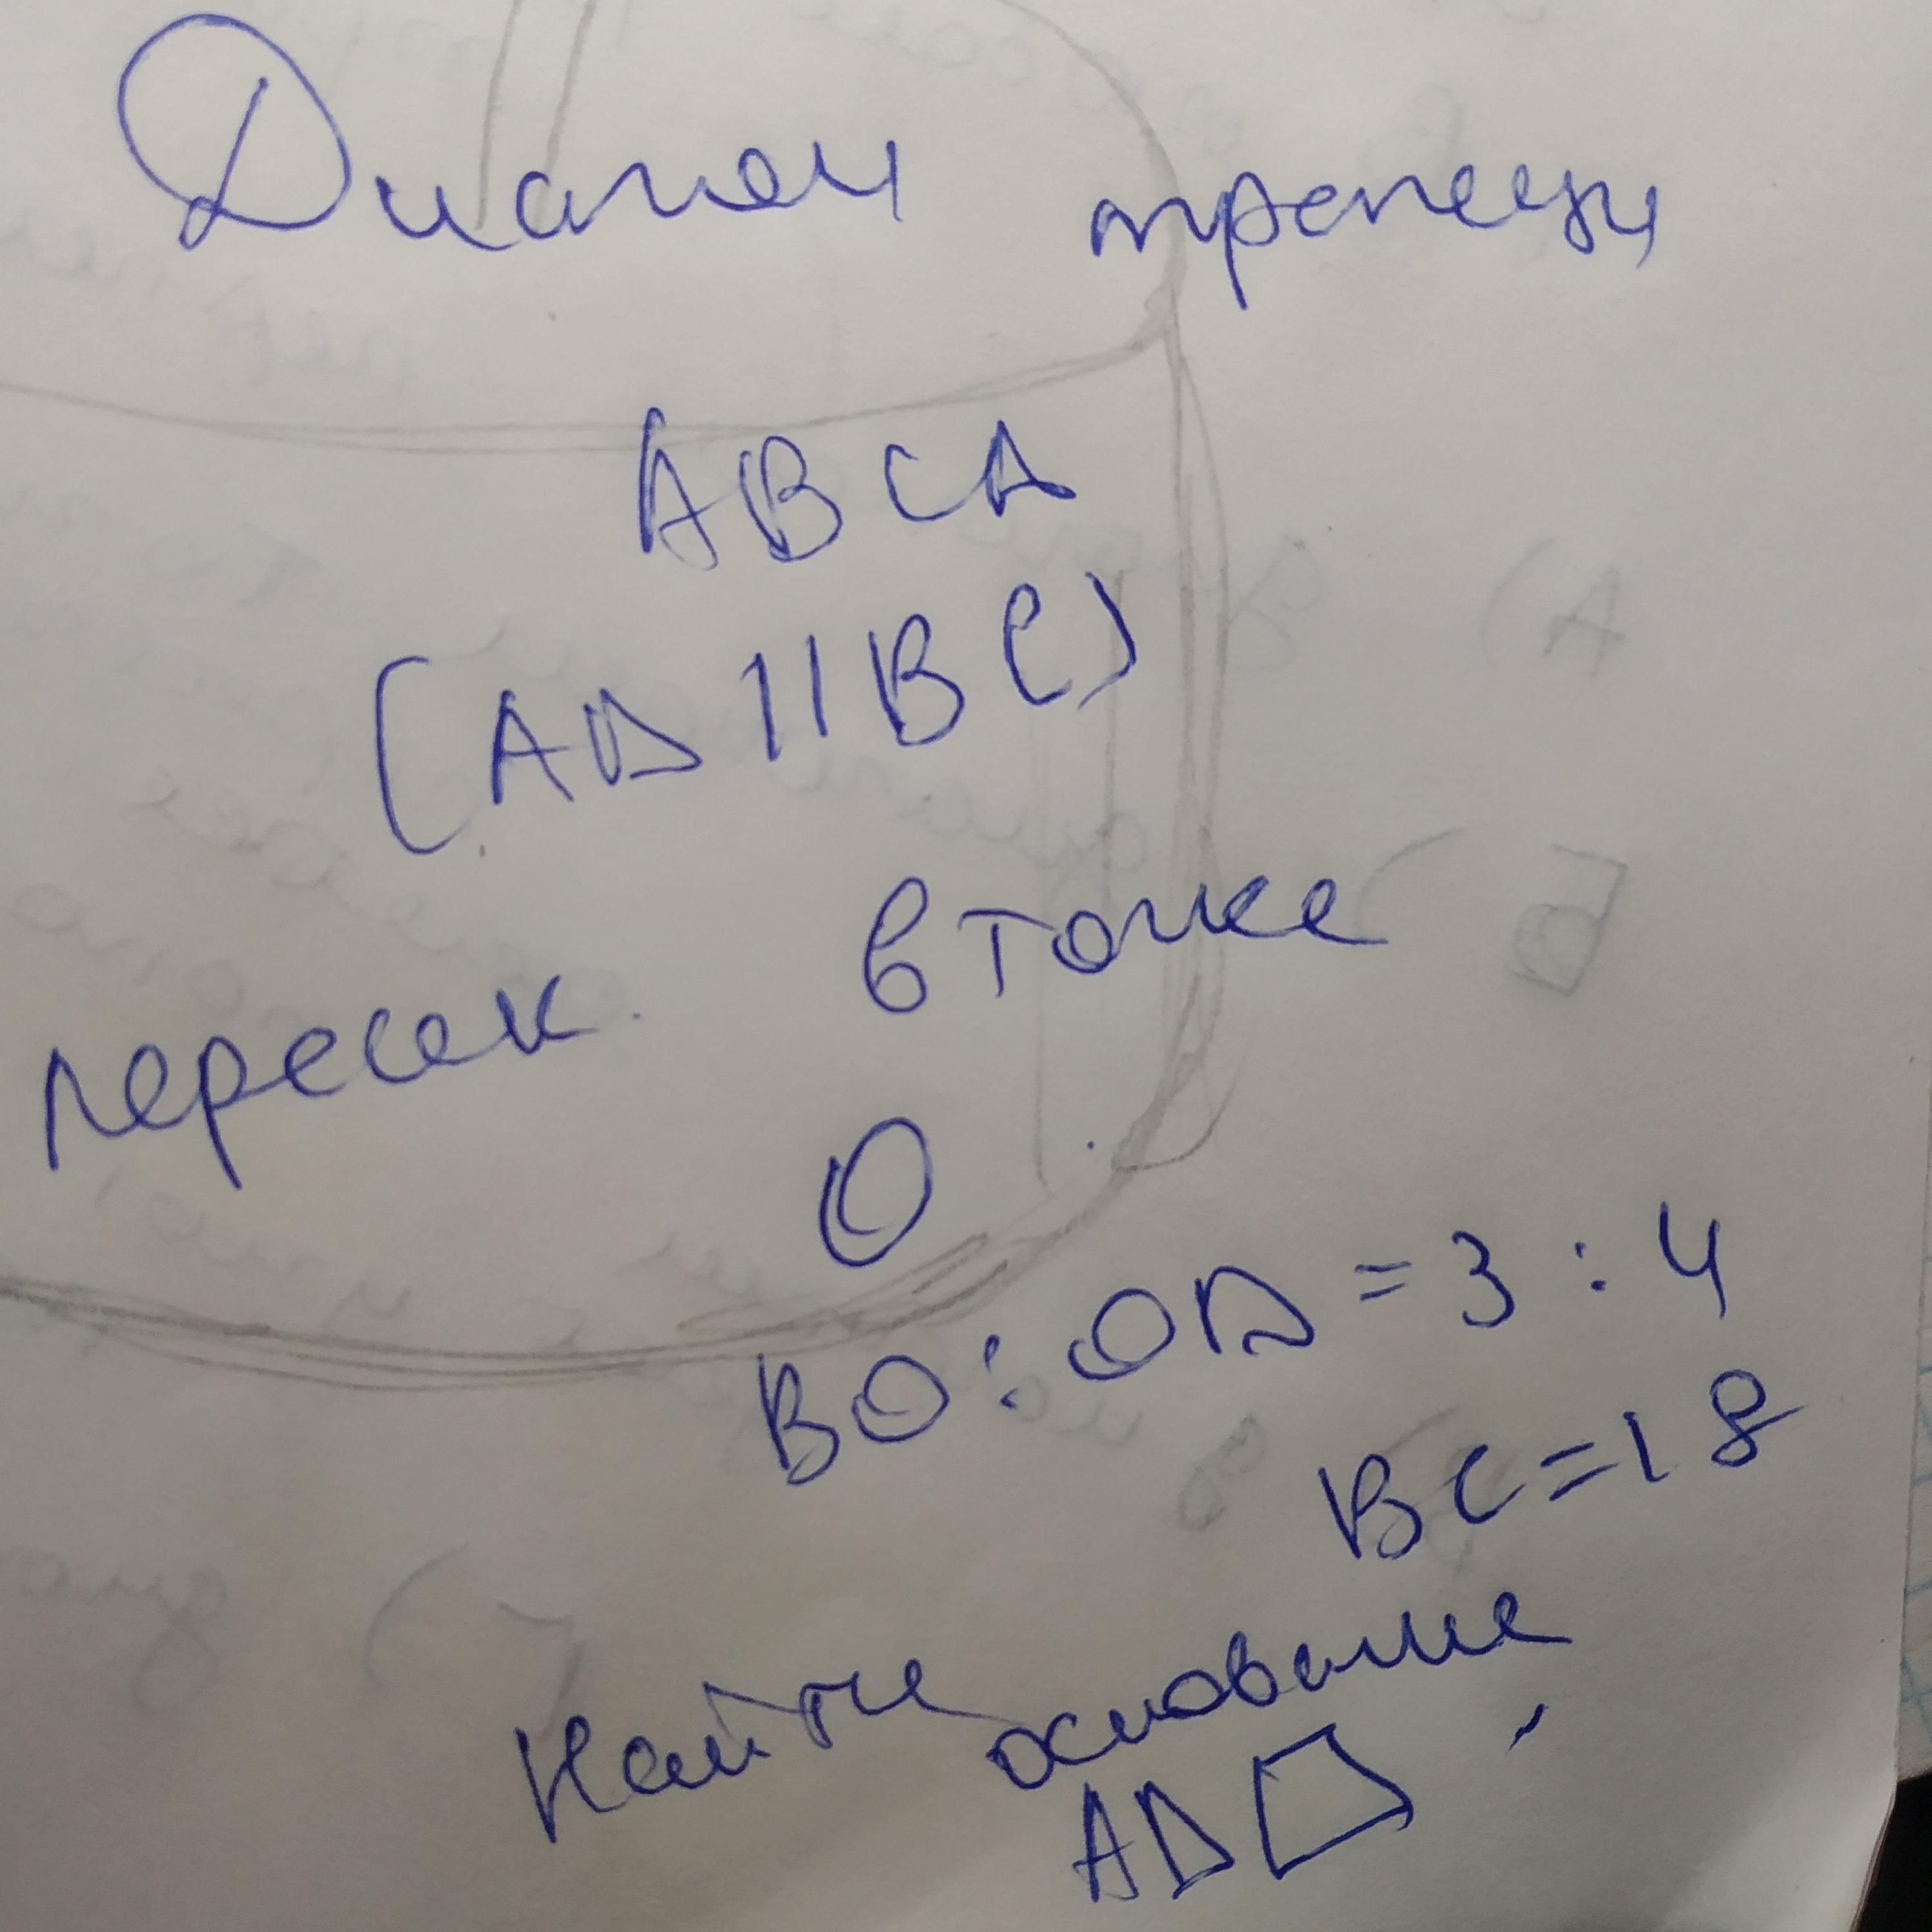 Диагон трапеции
ABCD
(AD || BC)
пересек. в точке
O
BO : OD = 3 : 4
BC = 18
Найти основание
AD